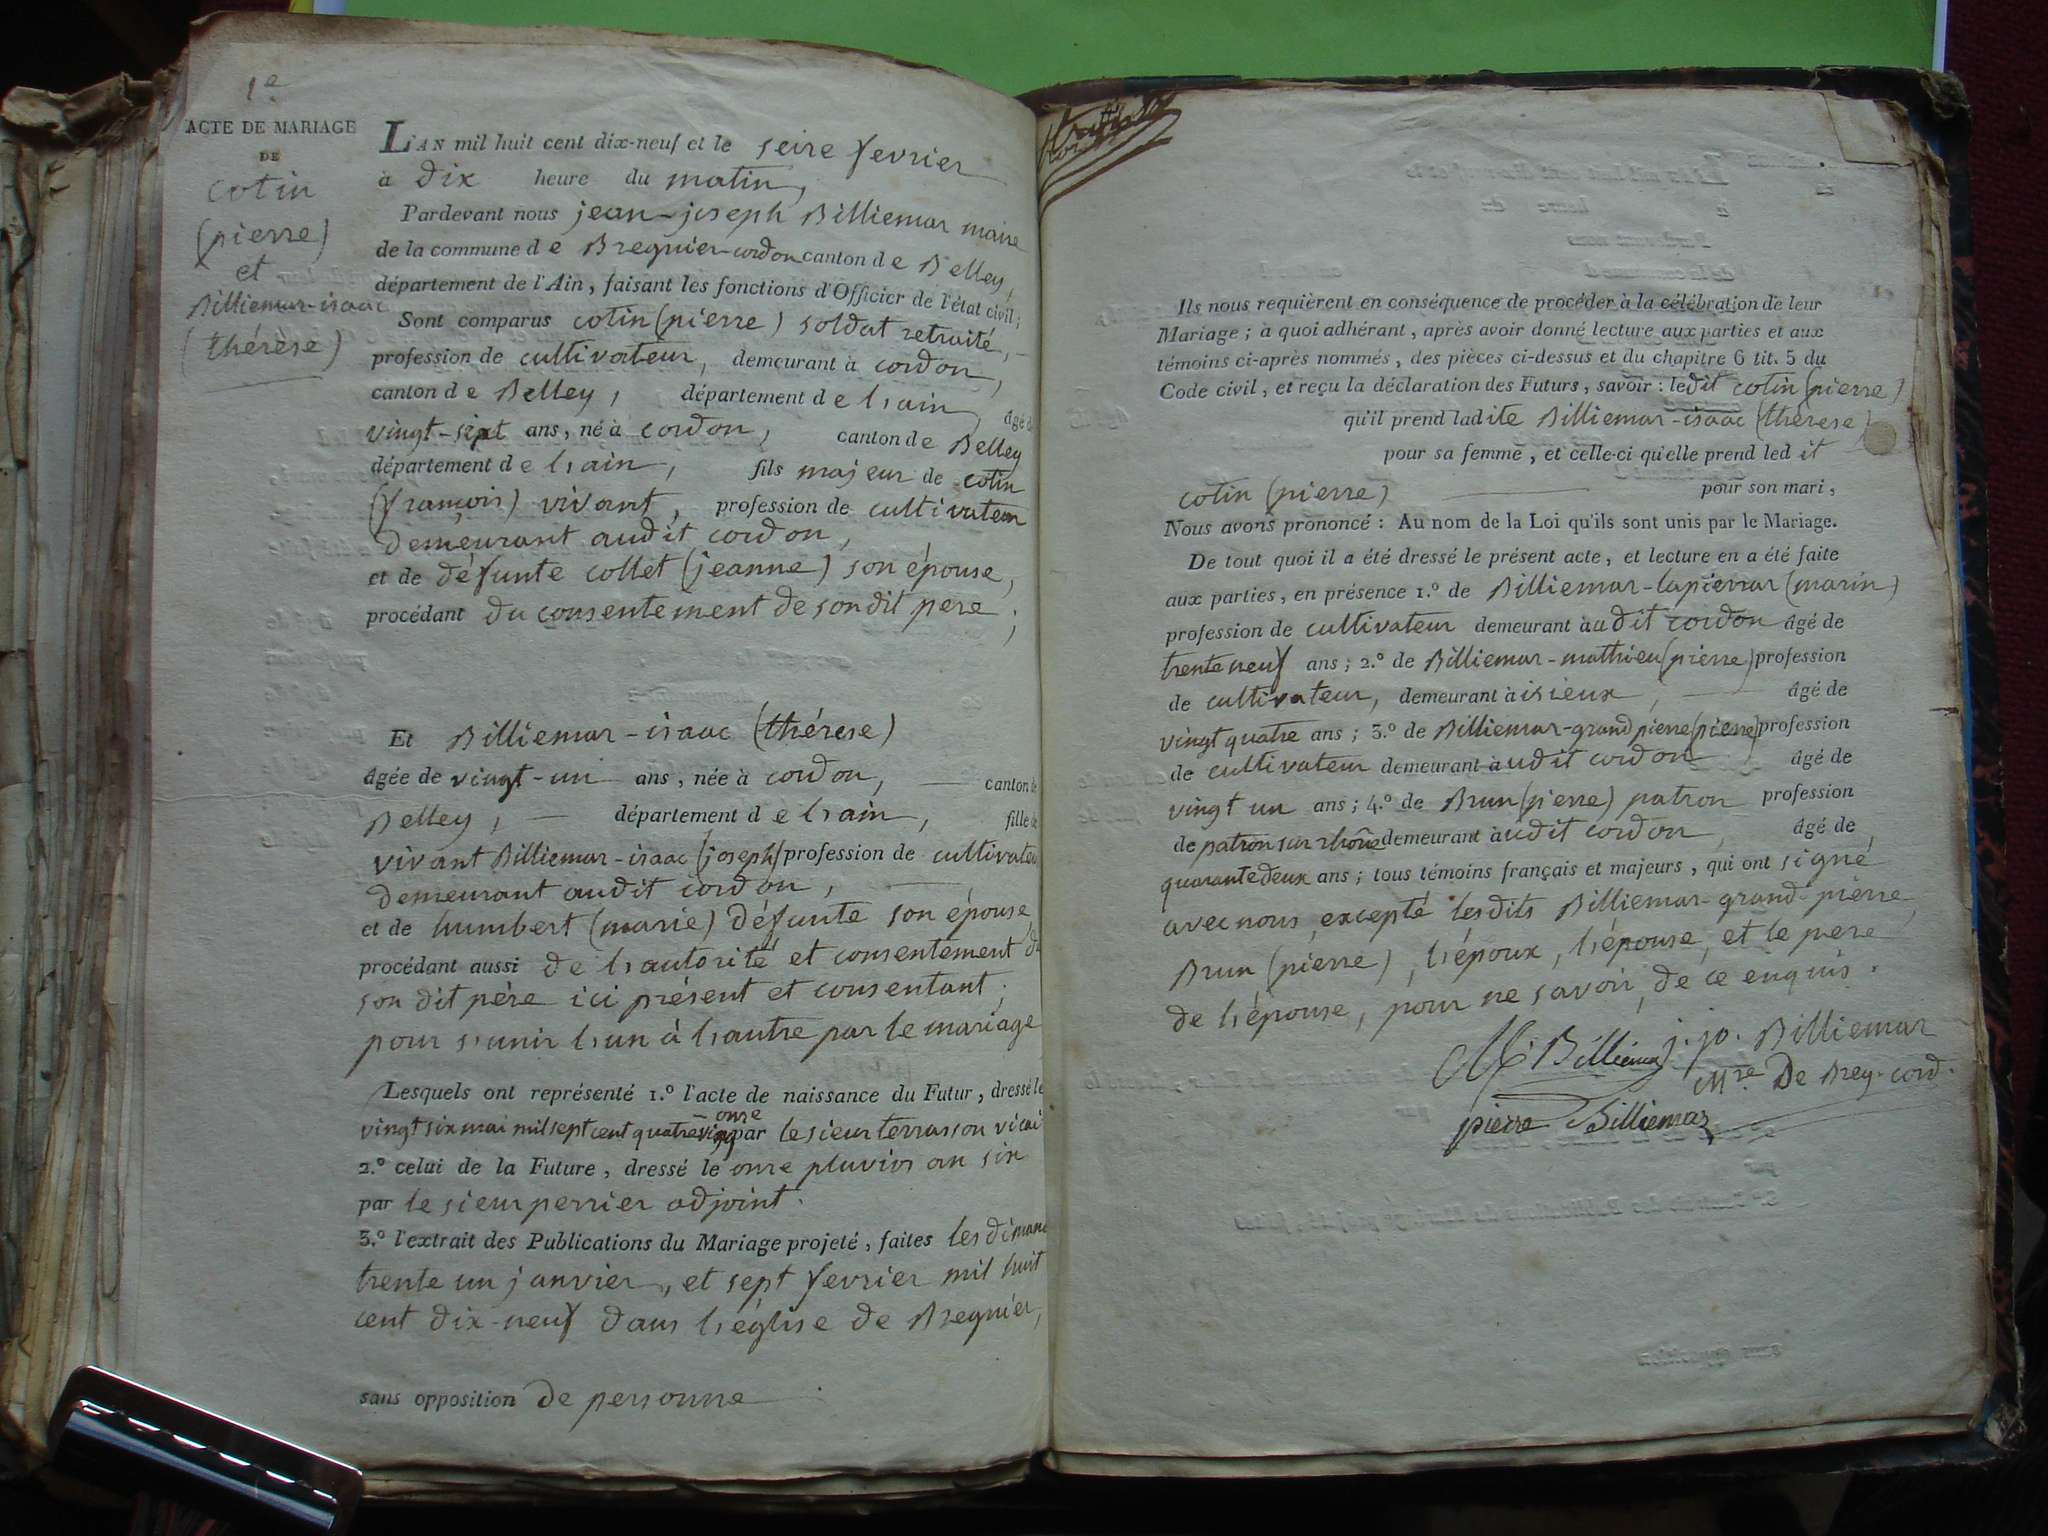 1.e
ACTE DE MARIAGE
DE
cotin
(pierre)
et
Billiemar-isaac
(thérèse)
L'AN mil huit cent dix-neuf et le seire fevrier
à dix heure du matin,
Pardevant nous jean-joseph Billiemar maire
de la commune de Bregnier-cordon canton de Belley,
département de l'Ain, faisant les fonctions d'Officier de l'état civil;
Sont comparus cotin (pierre) soldat retraité,
profession de cultivateur, demeurant à cordon,
canton de Belley, département de l'ain, âgé d
vingt-sept ans, né à cordon, canton de Belley
département de l'ain, fils majeur de cotin
(françois) vivant, profession de cultivateur
demeurant audit cordon,
et de défunte collet (jeanne) son épouse,
procédant du consentement de son dit pere;
Et Billiemar-isaac (thérese)
âgée de vingt-un ans, née à cordon, canton de
Belley, département de l'ain, fille de
vivant Billiemar-isaac (joseph) profession de cultivateu
demeurant audit cordon,
et de humbert (marie) défunte son épouse,
procédant aussi de l'autorité et consentement du
son dit père ici présent et consentant;
pour s'unir l'un à l'autre par le mariage
Lesquels ont représenté 1.º l'acte de naissance du Futur, dressé le
vingt six mai mil sept cent quatrevingt onse par le sieur terrasson vicai
2.º celui de la Future, dressé le onse pluvios an six
par le sieur perrier adjoint.
3.º l'extrait des Publications du Mariage projeté, faites les dimanc
trente un janvier, et sept fevrier mil huit
cent dix-neuf dans l'église de Bregnier,
sans opposition de personne.
Ils nous requièrent en conséquence de procéder à la célébration de leur
Mariage; à quoi adhérant, après avoir donné lecture aux parties et aux
témoins ci-après nommés, des pièces ci-dessus et du chapitre 6 tit. 5 du
Code civil, et reçu la déclaration des Futurs, savoir: ledit cotin (pierre)
qu'il prend ladite Billiemar-isaac (thérese)
pour sa femme, et celle-ci qu'elle prend ledit
cotin (pierre) pour son mari,
Nous avons prononcé: Au nom de la Loi qu'ils sont unis par le Mariage.
De tout quoi il a été dressé le présent acte, et lecture en a été faite
aux parties, en présence 1.º de Billiemar-lapierrar (marin)
profession de cultivateur demeurant àudit cordon âgé de
trente neuf ans; 2.º de Billiemar-mathieu (pierre) profession
de cultivateur, demeurant à isieux, âgé de
vingt quatre ans; 3.º de Billiemar-grand pierre (pierre) profession
de cultivateur demeurant àudit cordon, âgé de
vingt un ans; 4.º de Brun (pierre) patron profession
de patron sur rhône demeurant àudit cordon, âgé de
quarante deux ans; tous témoins français et majeurs, qui ont signé
avec nous, excepté lesdits Billiemar-grand-pierre,
Brun (pierre), l'époux, l'épouse, et le pere
de l'épouse, pour ne savoir, de ce enquis.
M. Billiemaz j. jo. Billiemar
Mre De Breg. cord.
pierre Billiemaz